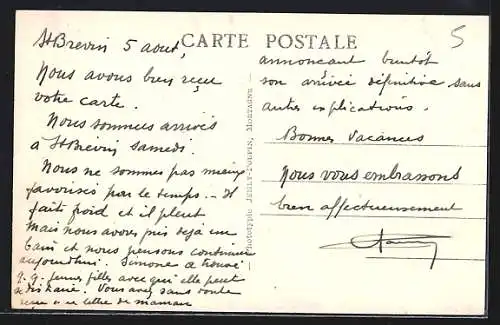 St Brevin 5 aout,
CARTE POSTALE
5
Nous avons bien reçu
votre carte.
Nous sommes arrivés
à St Brevin samedi.
Nous ne sommes pas mieux
favorisés par le temps. - Il
fait froid et il pleut
mais nous avons pris déjà un
bain et nous pensons continuer
aujourd'hui. Simone a trouvé
q.q. jeunes filles avec qui elle peut
se distraire. Vous avez sans doute
reçu la lettre de maman
annoncant bientôt
son arrivée définitive sans
autres explications.
Bonnes Vacances
Nous vous embrassons
bien affectueusement
Phototypie JEHLY-POUPIN, MORTAGNE